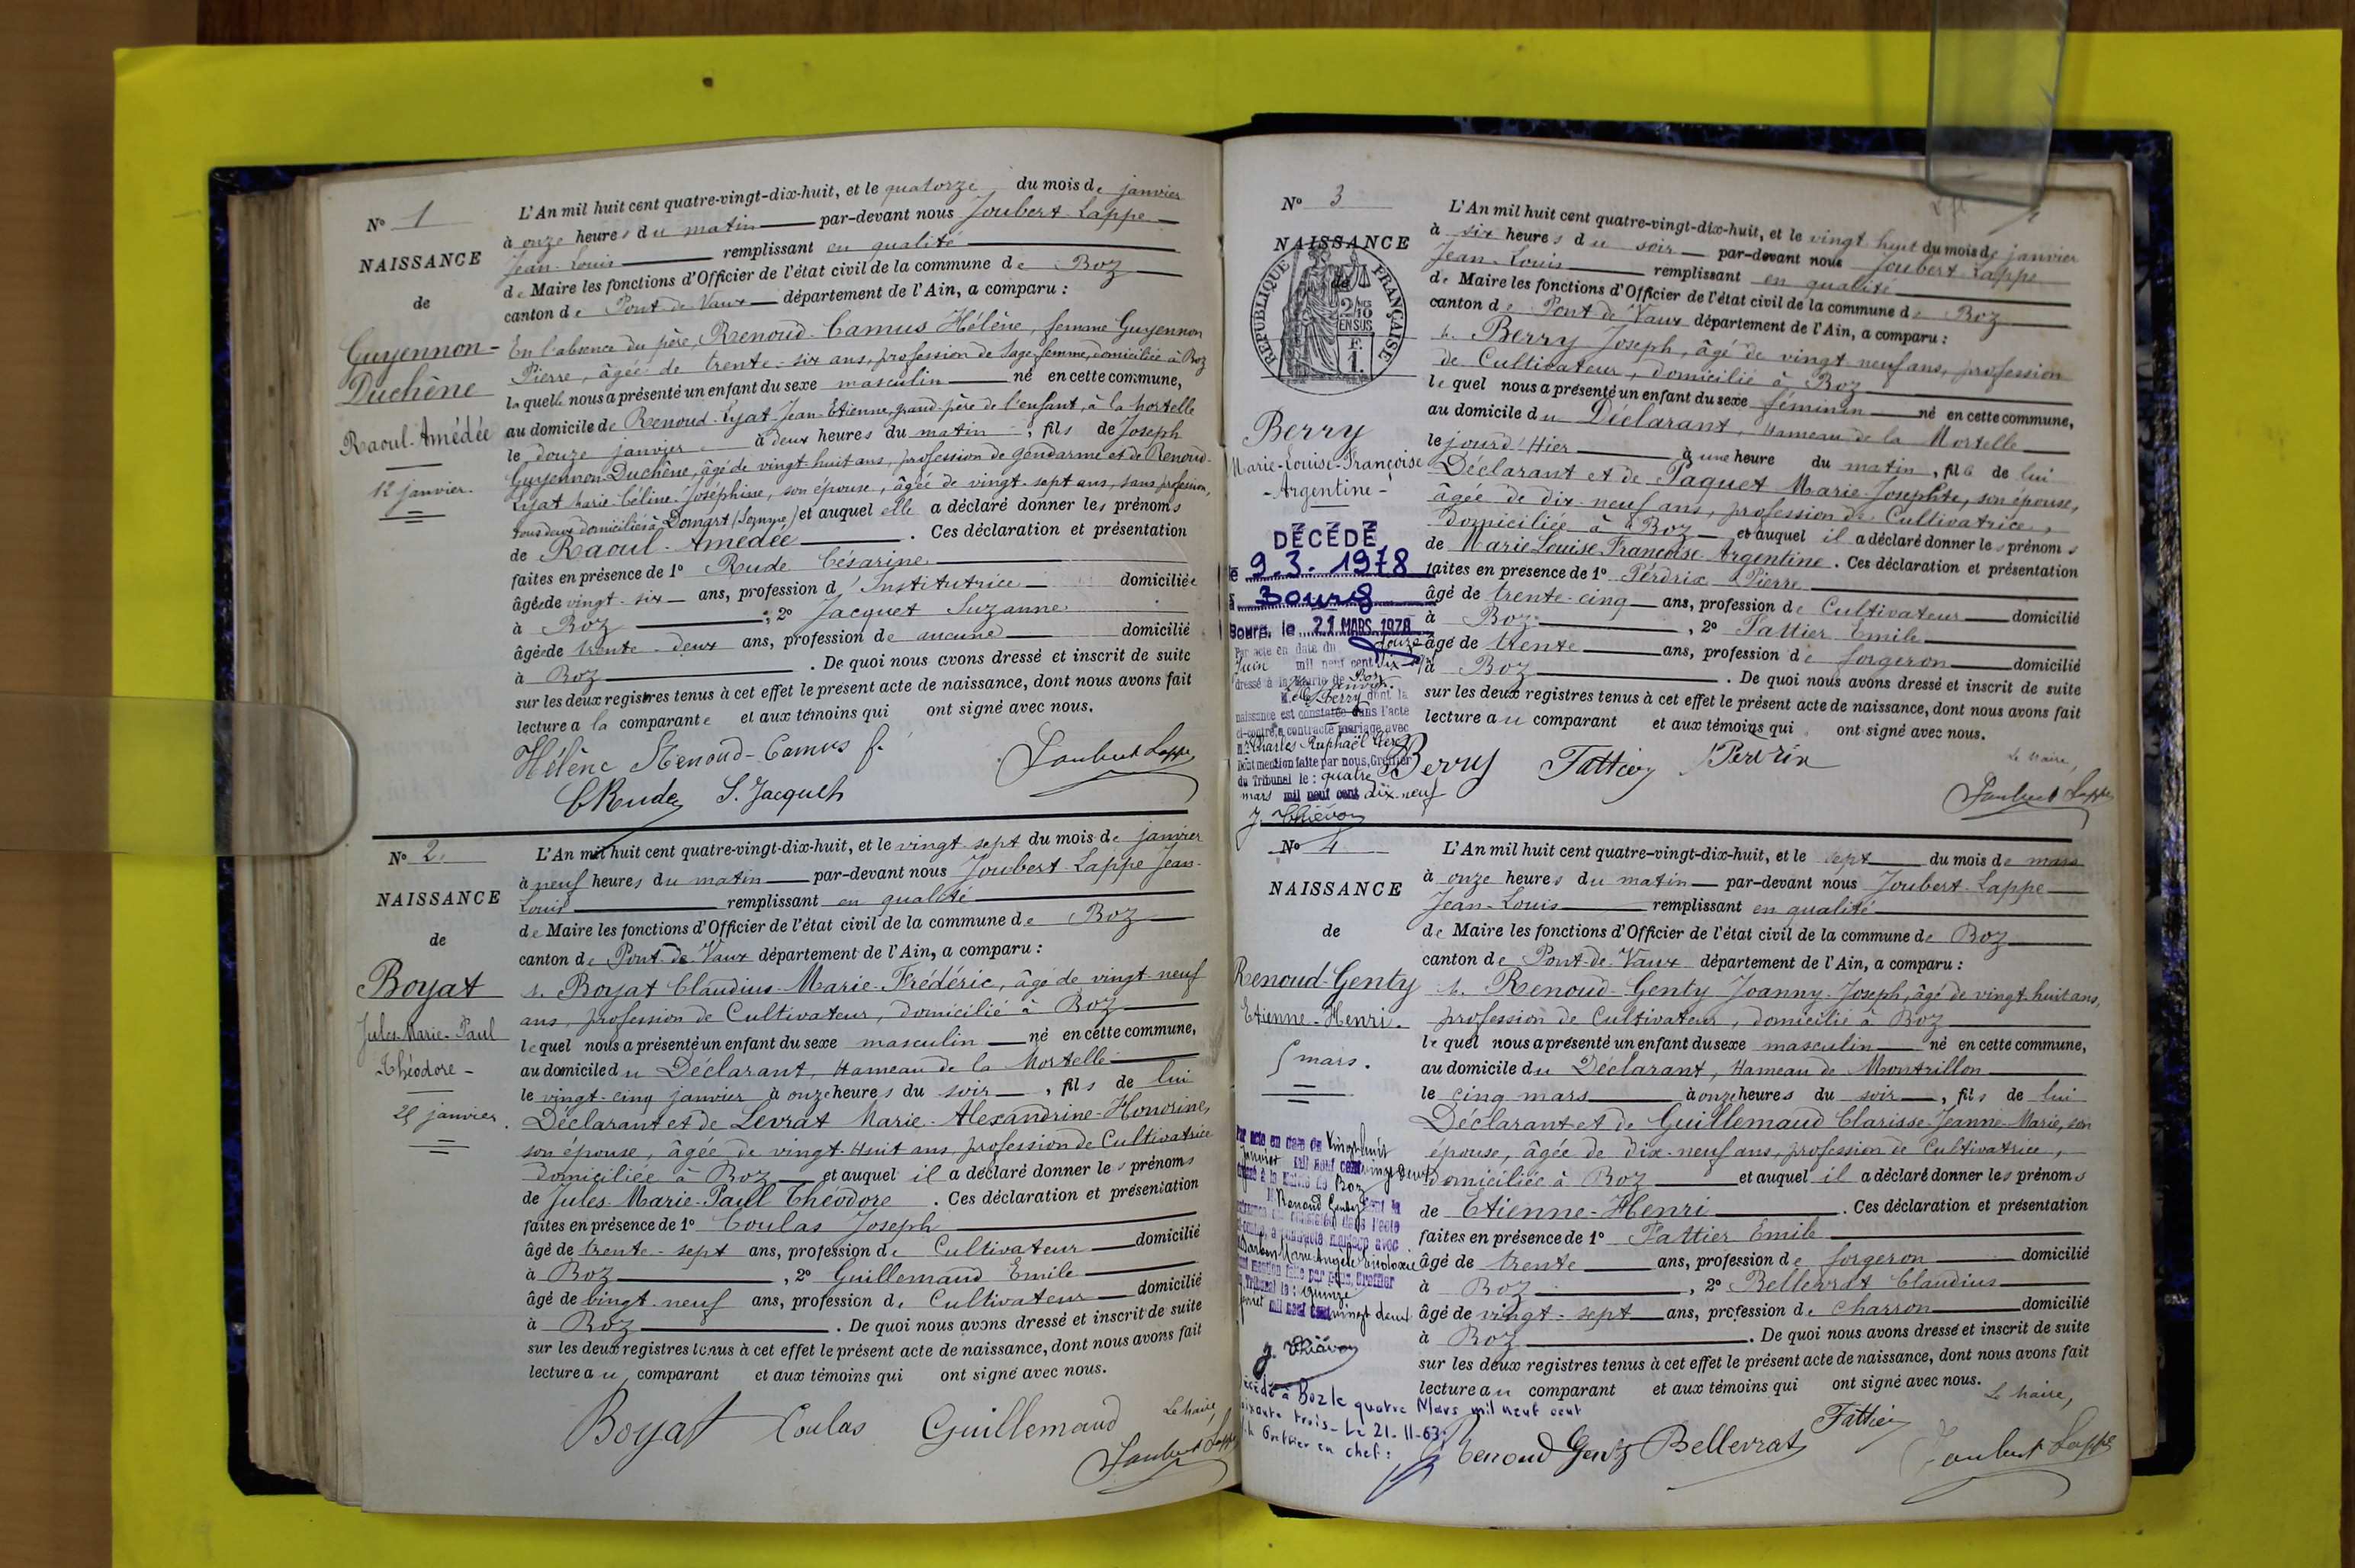 N° 1
NAISSANCE
de
Guyennon-
Duchêne
Raoul-Amédée
12 janvier.
L'An mil huit cent quatre-vingt-dix-huit, et le quatorze du mois de janvier
à onze heures du matin par-devant nous Joubert-Lappe
Jean-Louis remplissant en qualité
de Maire les fonctions d'Officier de l'état civil de la commune de Boz
canton de Pont-de-Vaux département de l'Ain, a comparu :
En l'absence du père, Renoud-Camus Hélène, femme Guyennon
Pierre, âgée de trente-six ans, profession de Sage-femme, domiciliée à Boz
laquelle nous a présenté un enfant du sexe masculin né en cette commune,
au domicile de Renoud-Lyat Jean-Etienne, grand-père de l'enfant, à la Mortelle
le douze janvier à deux heures du matin, fils de Joseph
Guyennon-Duchêne, âgé de vingt-huit ans, profession de gendarme et de Renoud-
Lyat Marie-Céline-Joséphine, son épouse, âgée de vingt-sept ans, sans profession,
tous deux domiciliés à Domart (Somme) et auquel elle a déclaré donner les prénoms
de Raoul-Amédée. Ces déclaration et présentation
faites en présence de 1° Rude Césarine
âgée de vingt-six ans, profession d'Institutrice domiciliée
à Boz ; 2° Jacquet Suzanne
âgée de trente-deux ans, profession de aucune domicilié
à Boz. De quoi nous avons dressé et inscrit de suite
sur les deux registres tenus à cet effet le présent acte de naissance, dont nous avons fait
lecture a la comparante et aux témoins qui ont signé avec nous.
Hélène Renoud-Camus f.
Joubert Lappe
C Rude S. Jacquet
N° 2
NAISSANCE
de
Boyat
Jules-Marie-Paul
Théodore-
25 janvier.
L'An mil huit cent quatre-vingt-dix-huit, et le vingt-sept du mois de janvier
à neuf heures du matin par-devant nous Joubert-Lappe Jean-
Louis remplissant en qualité
de Maire les fonctions d'Officier de l'état civil de la commune de Boz
canton de Pont-de-Vaux département de l'Ain, a comparu :
s. Boyat Claudius-Marie-Frédéric, âgé de vingt-neuf
ans, profession de Cultivateur, domicilié à Boz
lequel nous a présenté un enfant du sexe masculin né en cette commune,
au domicile du Déclarant, Hameau de la Mortelle
le vingt-cinq janvier à onze heures du soir, fils de lui
Déclarant et de Levrat Marie-Alexandrine-Honorine,
son épouse, âgée de vingt-huit ans, profession de Cultivatrice
domiciliée à Boz et auquel il a déclaré donner les prénoms
de Jules-Marie-Paul Théodore. Ces déclaration et présentation
faites en présence de 1° Coulas Joseph
âgé de trente-sept ans, profession de Cultivateur domicilié
à Boz, 2° Guillemaud Emile
âgé de vingt-neuf ans, profession de Cultivateur domicilié
à Boz. De quoi nous avons dressé et inscrit de suite
sur les deux registres tenus à cet effet le présent acte de naissance, dont nous avons fait
lecture au comparant et aux témoins qui ont signé avec nous.
Le Maire,
Boyat Coulas Guillemaud
Joubert Lappe
N° 3
NAISSANCE
de
RÉPUBLIQUE FRANÇAISE
Berry
Marie-Louise-Françoise
-Argentine-
DÉCÉDÉ
le 9.3.1978
à Bourg
Bourg, le 21 MARS 1978
Par acte en date du douze
Juin mil neuf cent dix-
dressé à la Mairie de Boz
Berry dont la
naissance est constatée dans l'acte
ci-contre, a contracté mariage avec
Charles Raphaël
Dont mention faite par nous, Greffier
du Tribunal le : quatre
mars mil neuf cent dix-neuf
L'An mil huit cent quatre-vingt-dix-huit, et le vingt huit du mois de janvier
à six heures du soir par-devant nous Joubert-Lappe
Jean-Louis remplissant en qualité
de Maire les fonctions d'Officier de l'état civil de la commune de Boz
canton de Pont de Vaux département de l'Ain, a comparu :
s. Berry Joseph, âgé de vingt neuf ans, profession
de Cultivateur, domicilié à Boz
lequel nous a présenté un enfant du sexe féminin né en cette commune,
au domicile du Déclarant, Hameau de la Mortelle
le jourd'Hier à une heure du matin, fille de lui
Déclarant et de Paquet Marie-Josephte, son épouse,
âgée de dix-neuf ans, profession de Cultivatrice,
domiciliée à Boz et auquel il a déclaré donner les prénoms
de Marie Louise Françoise Argentine. Ces déclaration et présentation
faites en présence de 1° Perdrix Pierre
âgé de trente-cinq ans, profession de Cultivateur domicilié
à Boz, 2° Fattier Emile
âgé de trente ans, profession de forgeron domicilié
à Boz. De quoi nous avons dressé et inscrit de suite
sur les deux registres tenus à cet effet le présent acte de naissance, dont nous avons fait
lecture au comparant et aux témoins qui ont signé avec nous.
Le Maire,
Berry Fattier Perdrix
Joubert Lappe
N° 4
NAISSANCE
de
Renoud-Genty
Etienne-Henri.
5 mars.
Par acte en date du vingt huit
janvier mil neuf cent vingt deux
dressé à la Mairie de Boz
Renoud Genty dont la
naissance est constatée dans l'acte
ci-contre, a contracté mariage avec
Marie Angèle
Dont mention faite par nous, Greffier
du Tribunal le : quinze
mil neuf cent vingt deux
Décédé à Boz le quatre Mars mil neuf cent
soixante trois - Le 21-11-63
Le Greffier en chef :
L'An mil huit cent quatre-vingt-dix-huit, et le sept du mois de mars
à onze heures du matin par-devant nous Joubert-Lappe
Jean-Louis remplissant en qualité
de Maire les fonctions d'Officier de l'état civil de la commune de Boz
canton de Pont-de-Vaux département de l'Ain, a comparu :
s. Renoud-Genty Joanny-Joseph, âgé de vingt-huit ans,
profession de Cultivateur, domicilié à Boz
lequel nous a présenté un enfant du sexe masculin né en cette commune,
au domicile du Déclarant, Hameau de Montrillon
le cinq mars à onze heures du soir, fils de lui
Déclarant et de Guillemaud Clarisse-Jeanne-Marie, son
épouse, âgée de dix-neuf ans, profession de Cultivatrice,
domiciliée à Boz et auquel il a déclaré donner les prénoms
de Etienne-Henri. Ces déclaration et présentation
faites en présence de 1° Fattier Emile
âgé de trente ans, profession de forgeron domicilié
à Boz, 2° Bellevrat Claudius
âgé de vingt-sept ans, profession de charron domicilié
à Boz. De quoi nous avons dressé et inscrit de suite
sur les deux registres tenus à cet effet le présent acte de naissance, dont nous avons fait
lecture au comparant et aux témoins qui ont signé avec nous.
Le Maire,
Renoud Genty Bellevrat Fattier
Joubert Lappe